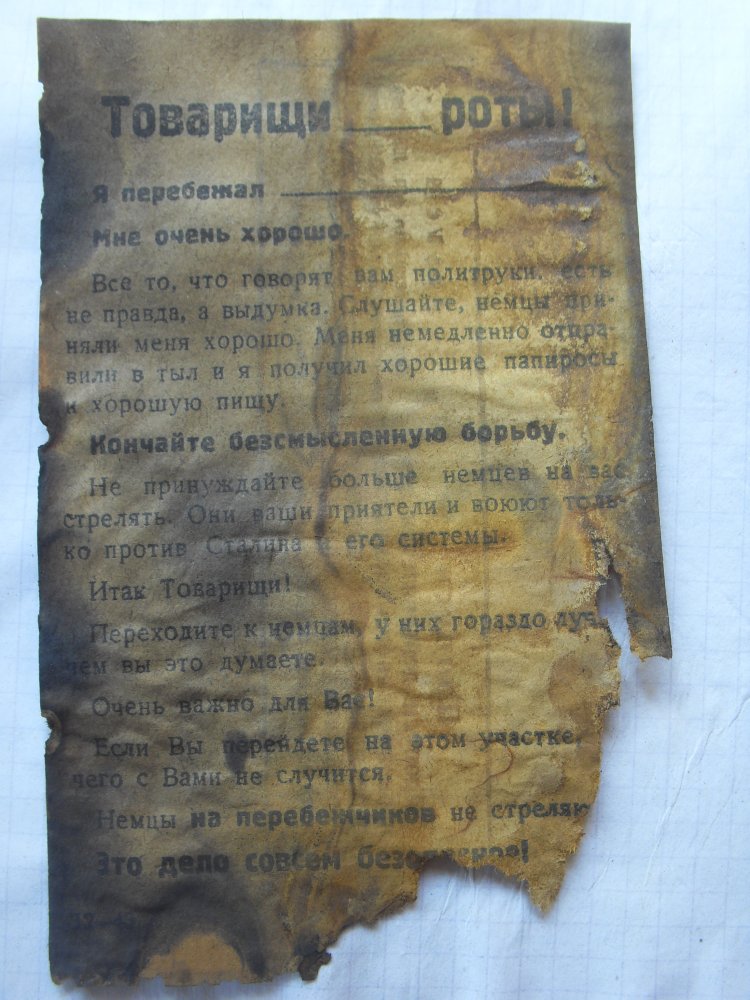 Товарищи ____ роты!
Я перебежал
Мне очень хорошо.
Все то, что говорят вам политруки, есть
не правда, а выдумка. Слушайте, немцы при-
няли меня хорошо. Меня немедленно отпра-
вили в тыл и я получил хорошие папиросы
и хорошую пищу.
Кончайте безсмысленную борьбу.
Не принуждайте больше немцев на вас
стрелять. Они ваши приятели и воюют толь-
ко против Сталина и его системы.
Итак Товарищи!
Переходите к немцам, у них гораздо
чем вы это думаете.
Очень важно для Вас!
Если Вы перейдете на этом участке,
чего с Вами не случится.
Немцы на перебежчиков не стреляю
Это дело совсем